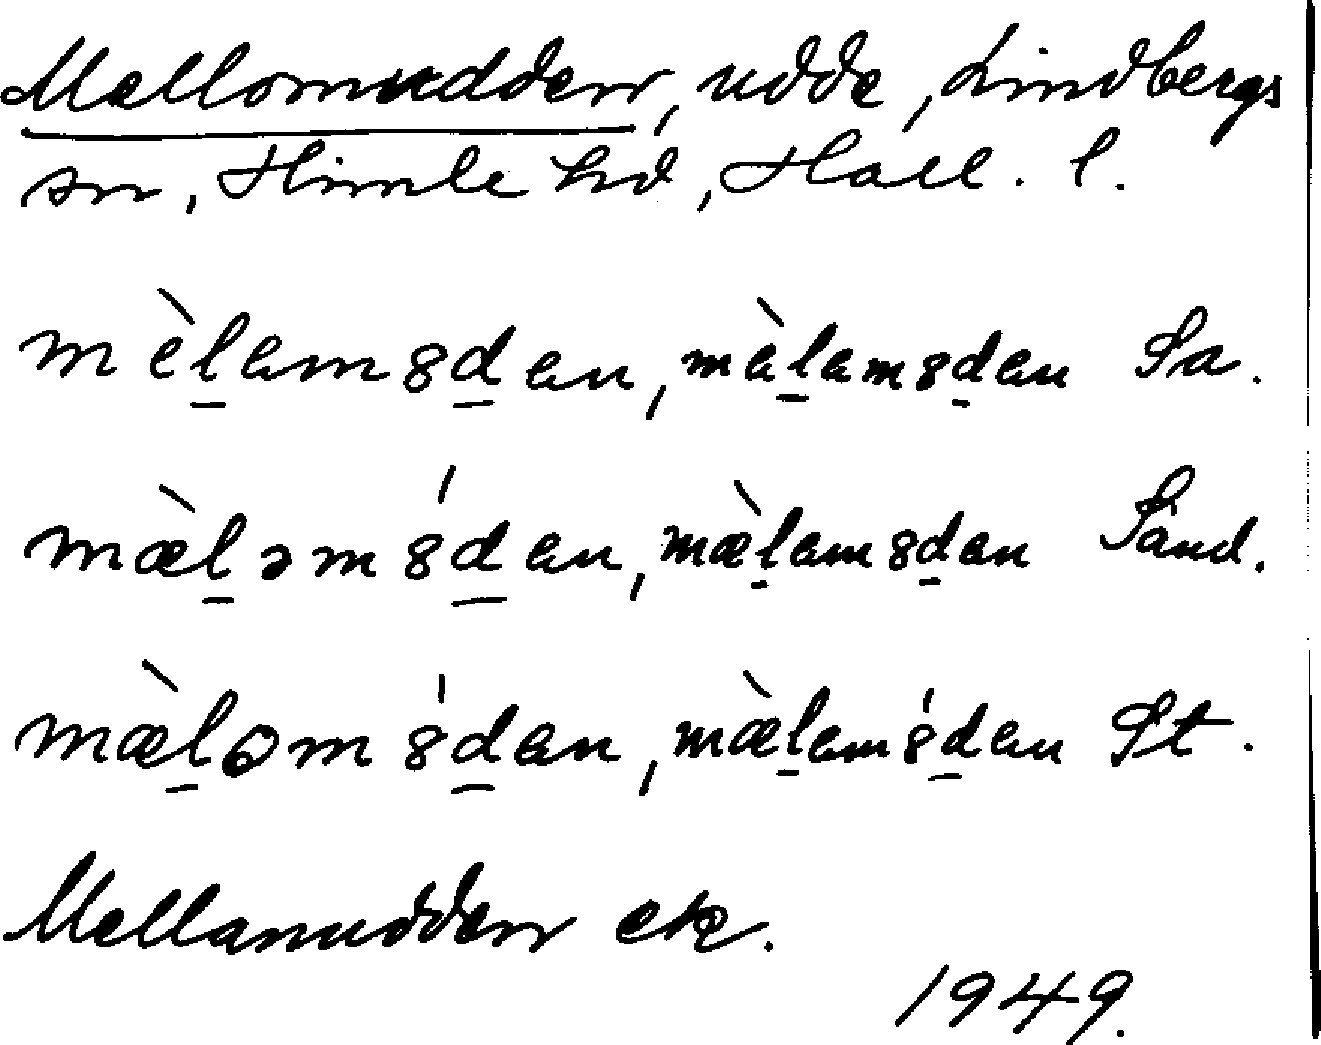 Mellomudden, udde, Lindbergs
sn, Himle hd, Hall. l.
mèlamsdan, màlamsdan Sa.
mæ̀ləmśdan, mæ̀lamsdan Sand.
mæ̀lomśdan, mæ̀lamśdan St.
Mellanudden ek.
1949.